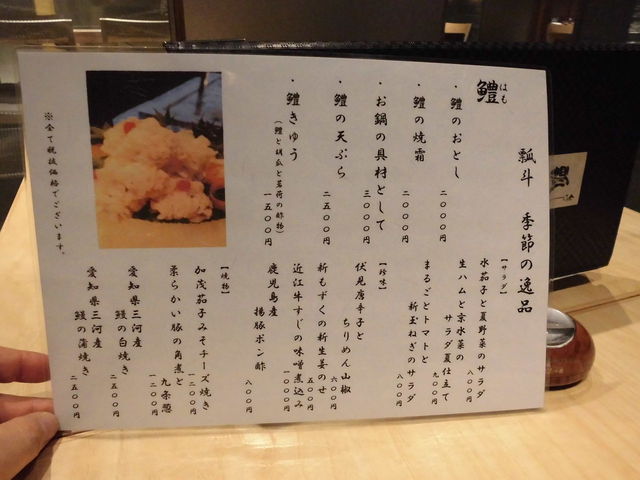 瓢斗 季節の逸品
鱧 はも
・鱧のおとし 二〇〇〇円
・鱧の焼霜 二〇〇〇円
・お鍋の具材として 三〇〇〇円
・鱧の天ぷら 二五〇〇円
・鱧きゅう
(鱧と胡瓜と茗荷の酢物) 一五〇〇円
【サラダ】
水茄子と夏野菜のサラダ 八〇〇円
生ハムと京水菜の
サラダ夏仕立て 九〇〇円
まるごとトマトと
新玉ねぎのサラダ 八〇〇円
【珍味】
伏見唐辛子と
ちりめん山椒 六〇〇円
新もずくの新生姜のせ 五〇〇円
近江牛すじの味噌煮込み 一〇〇〇円
鹿児島産
揚豚ポン酢 八〇〇円
【焼物】
加茂茄子みそチーズ焼き 一二〇〇円
柔らかい豚の角煮と
九条葱 一二〇〇円
愛知県三河産
鰻の白焼き 二五〇〇円
愛知県三河産
鰻の蒲焼き 二五〇〇円
※全て税抜価格でございます。